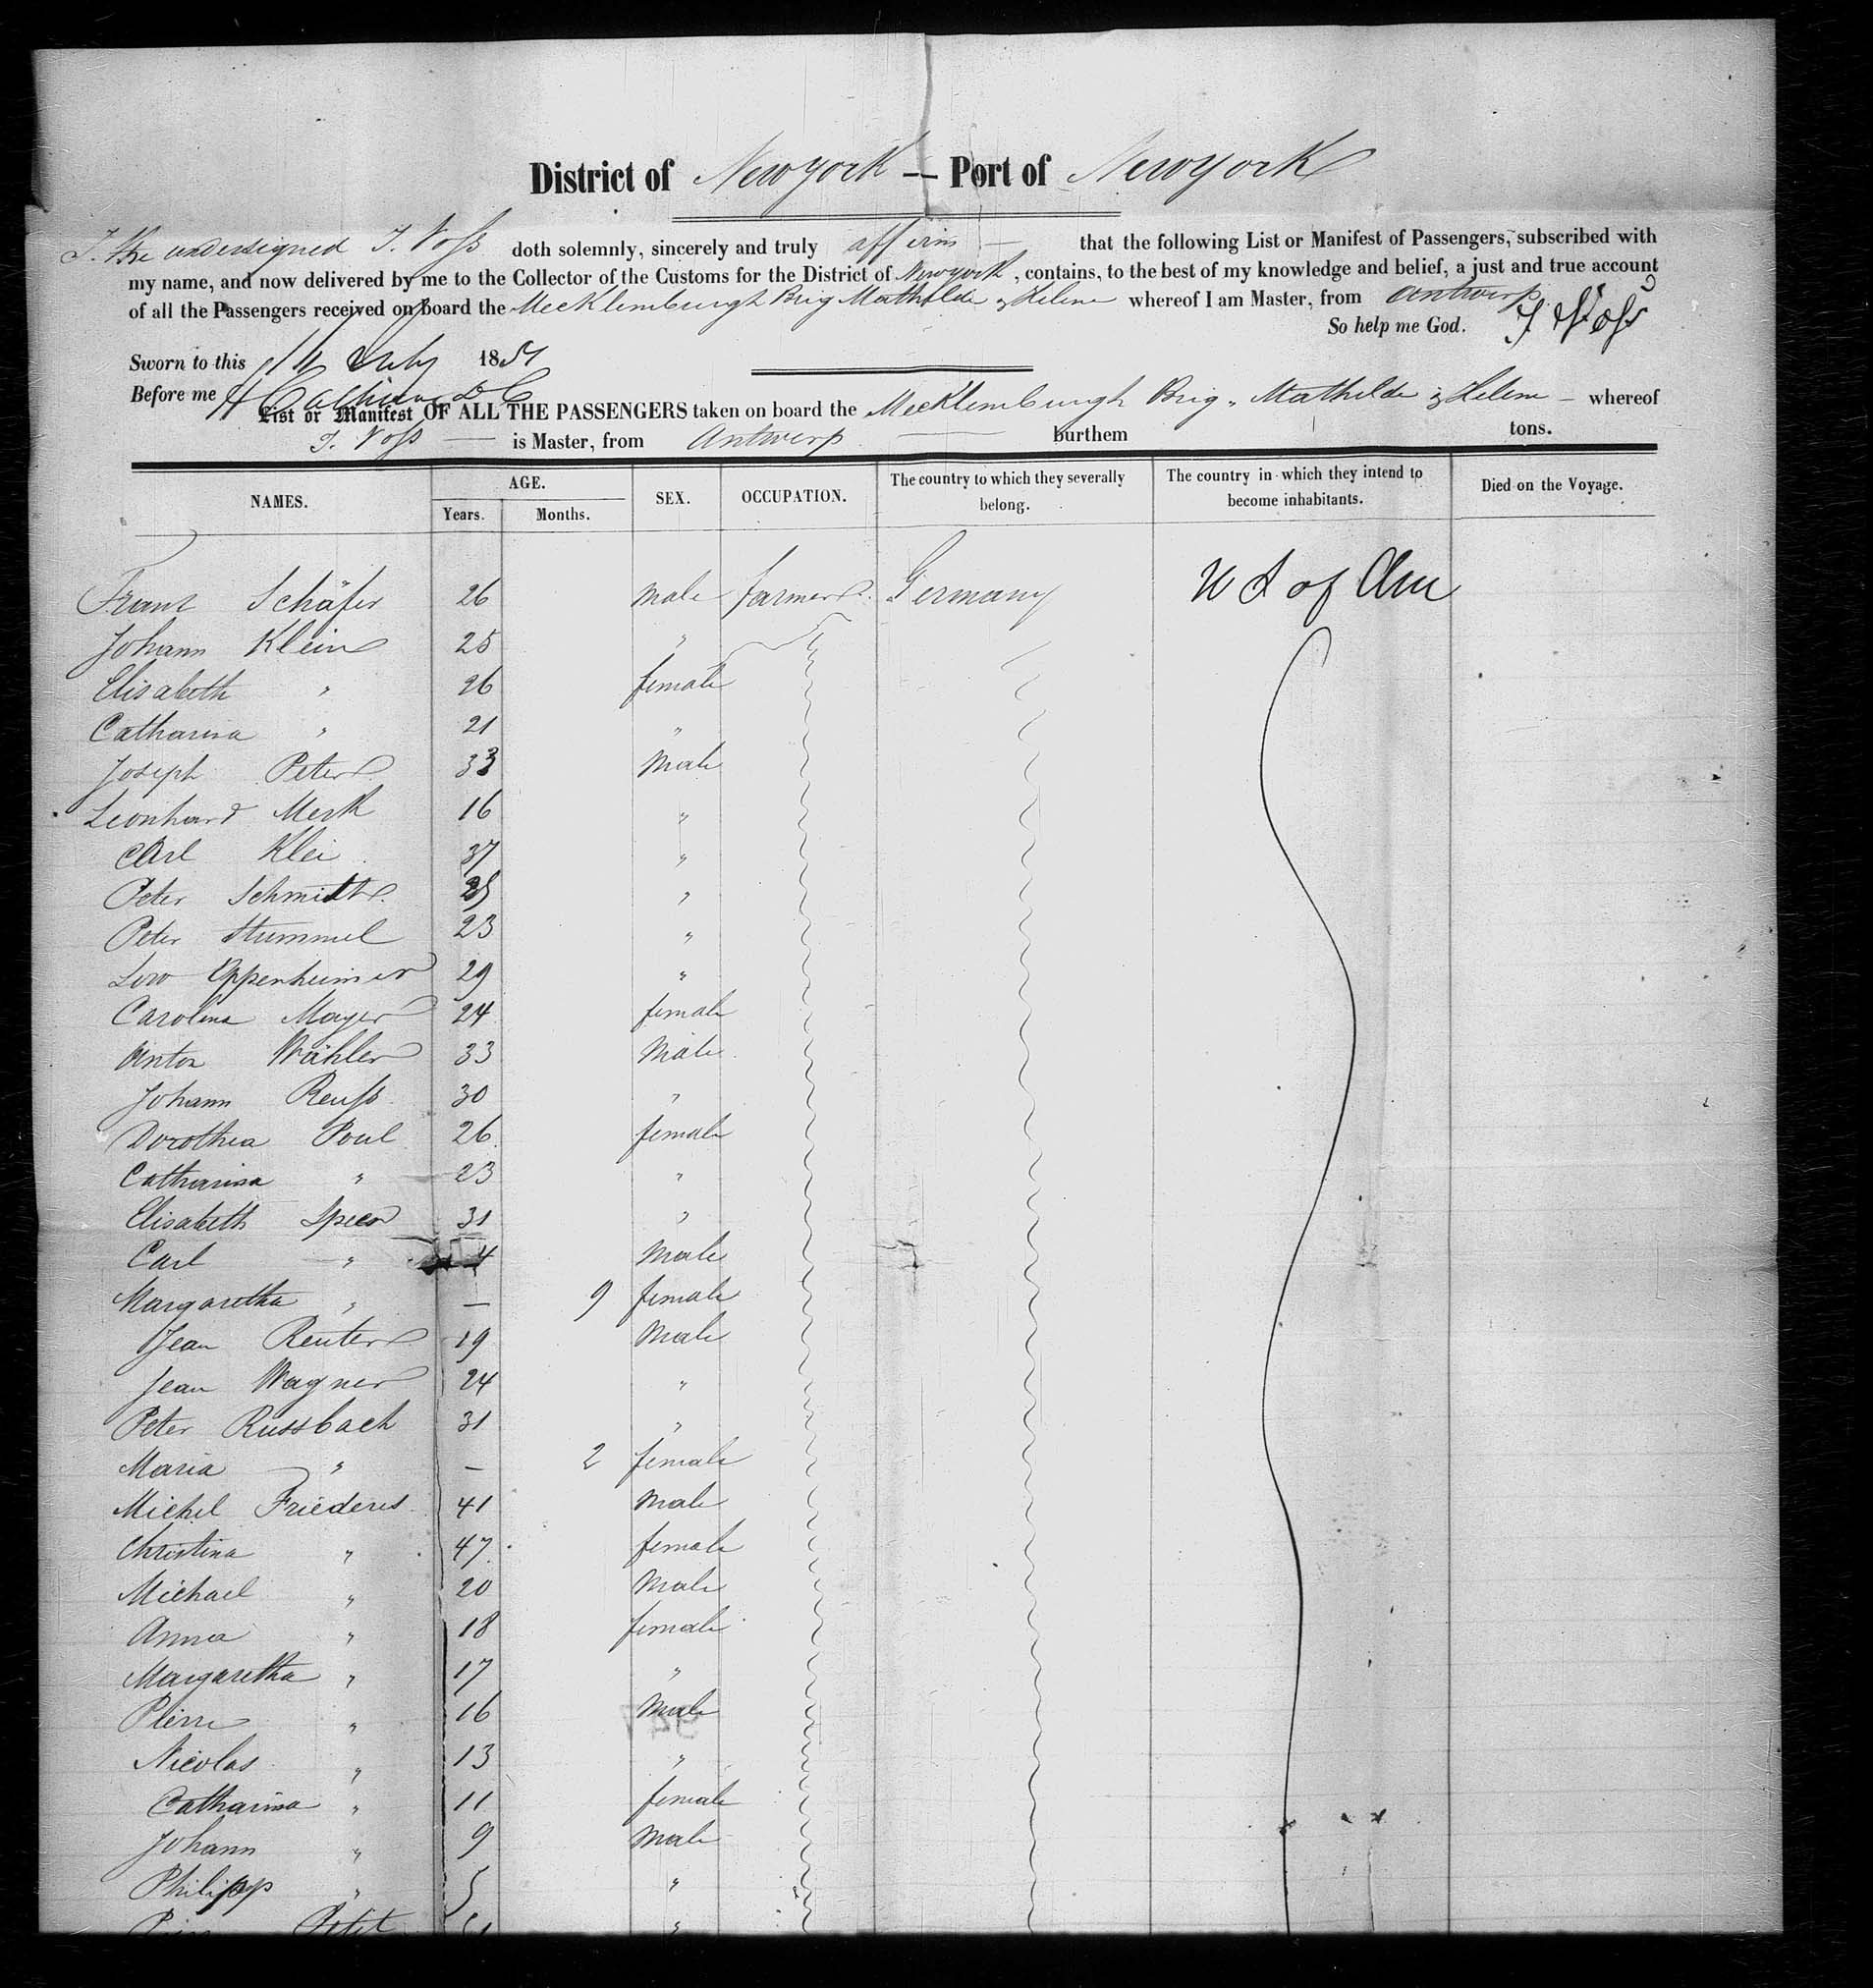 District of New york — Port of New york
I. the undersigned J. Voss doth solemnly, sincerely and truly affirm — that the following List or Manifest of Passengers, subscribed with
my name, and now delivered by me to the Collector of the Customs for the District of Newyork, contains, to the best of my knowledge and belief, a just and true account
of all the Passengers received on board the Mecklemburgh Brig Mathilde & Helene whereof I am Master, from Antwerp
So help me God. J. Voss
Sworn to this July 185
Before me
List or Manifest OF ALL THE PASSENGERS taken on board the Mecklemburgh Brig „ Mathilde & Helene — whereof
J. Voss — is Master, from Antwerp — burthem tons.
NAMES. AGE. SEX. OCCUPATION. The country to which they severally belong. The country in which they intend to become inhabitants. Died on the Voyage.
Years. Months.
Franz Schäfer 26 male farmer Germany U S of Am
Johann Klein 25 "
Elisabeth " 26 female
Catharina " 21 "
Joseph Peter 33 Male
Leonhard Merk 16 "
Carl Klei 37 "
Peter Schmidt "
Peter Stummel 23 "
Löw Oppenheimer 29 "
Carolina Mayer 24 female
Anton Wähler 33 Male
Johann Reuss 30 "
Dorothea Poul 26 female
Catharina " 23 "
Elisabeth Speer 31 "
Carl " 4 Male
Margaretha " — 9 female
Jean Reuter 19 Male
Jean Wagner 24 "
Peter Russbach 31 "
Maria " — 2 female
Michel Friederes 41 Male
Christina " 47 female
Michael " 20 Male
Anna " 18 female
Margaretha " 17 "
Pierre " 16 Male
Nicolas " 13 "
Catharina " 11 female
Johann " 9 Male
Philipp " 5 "
Petit "